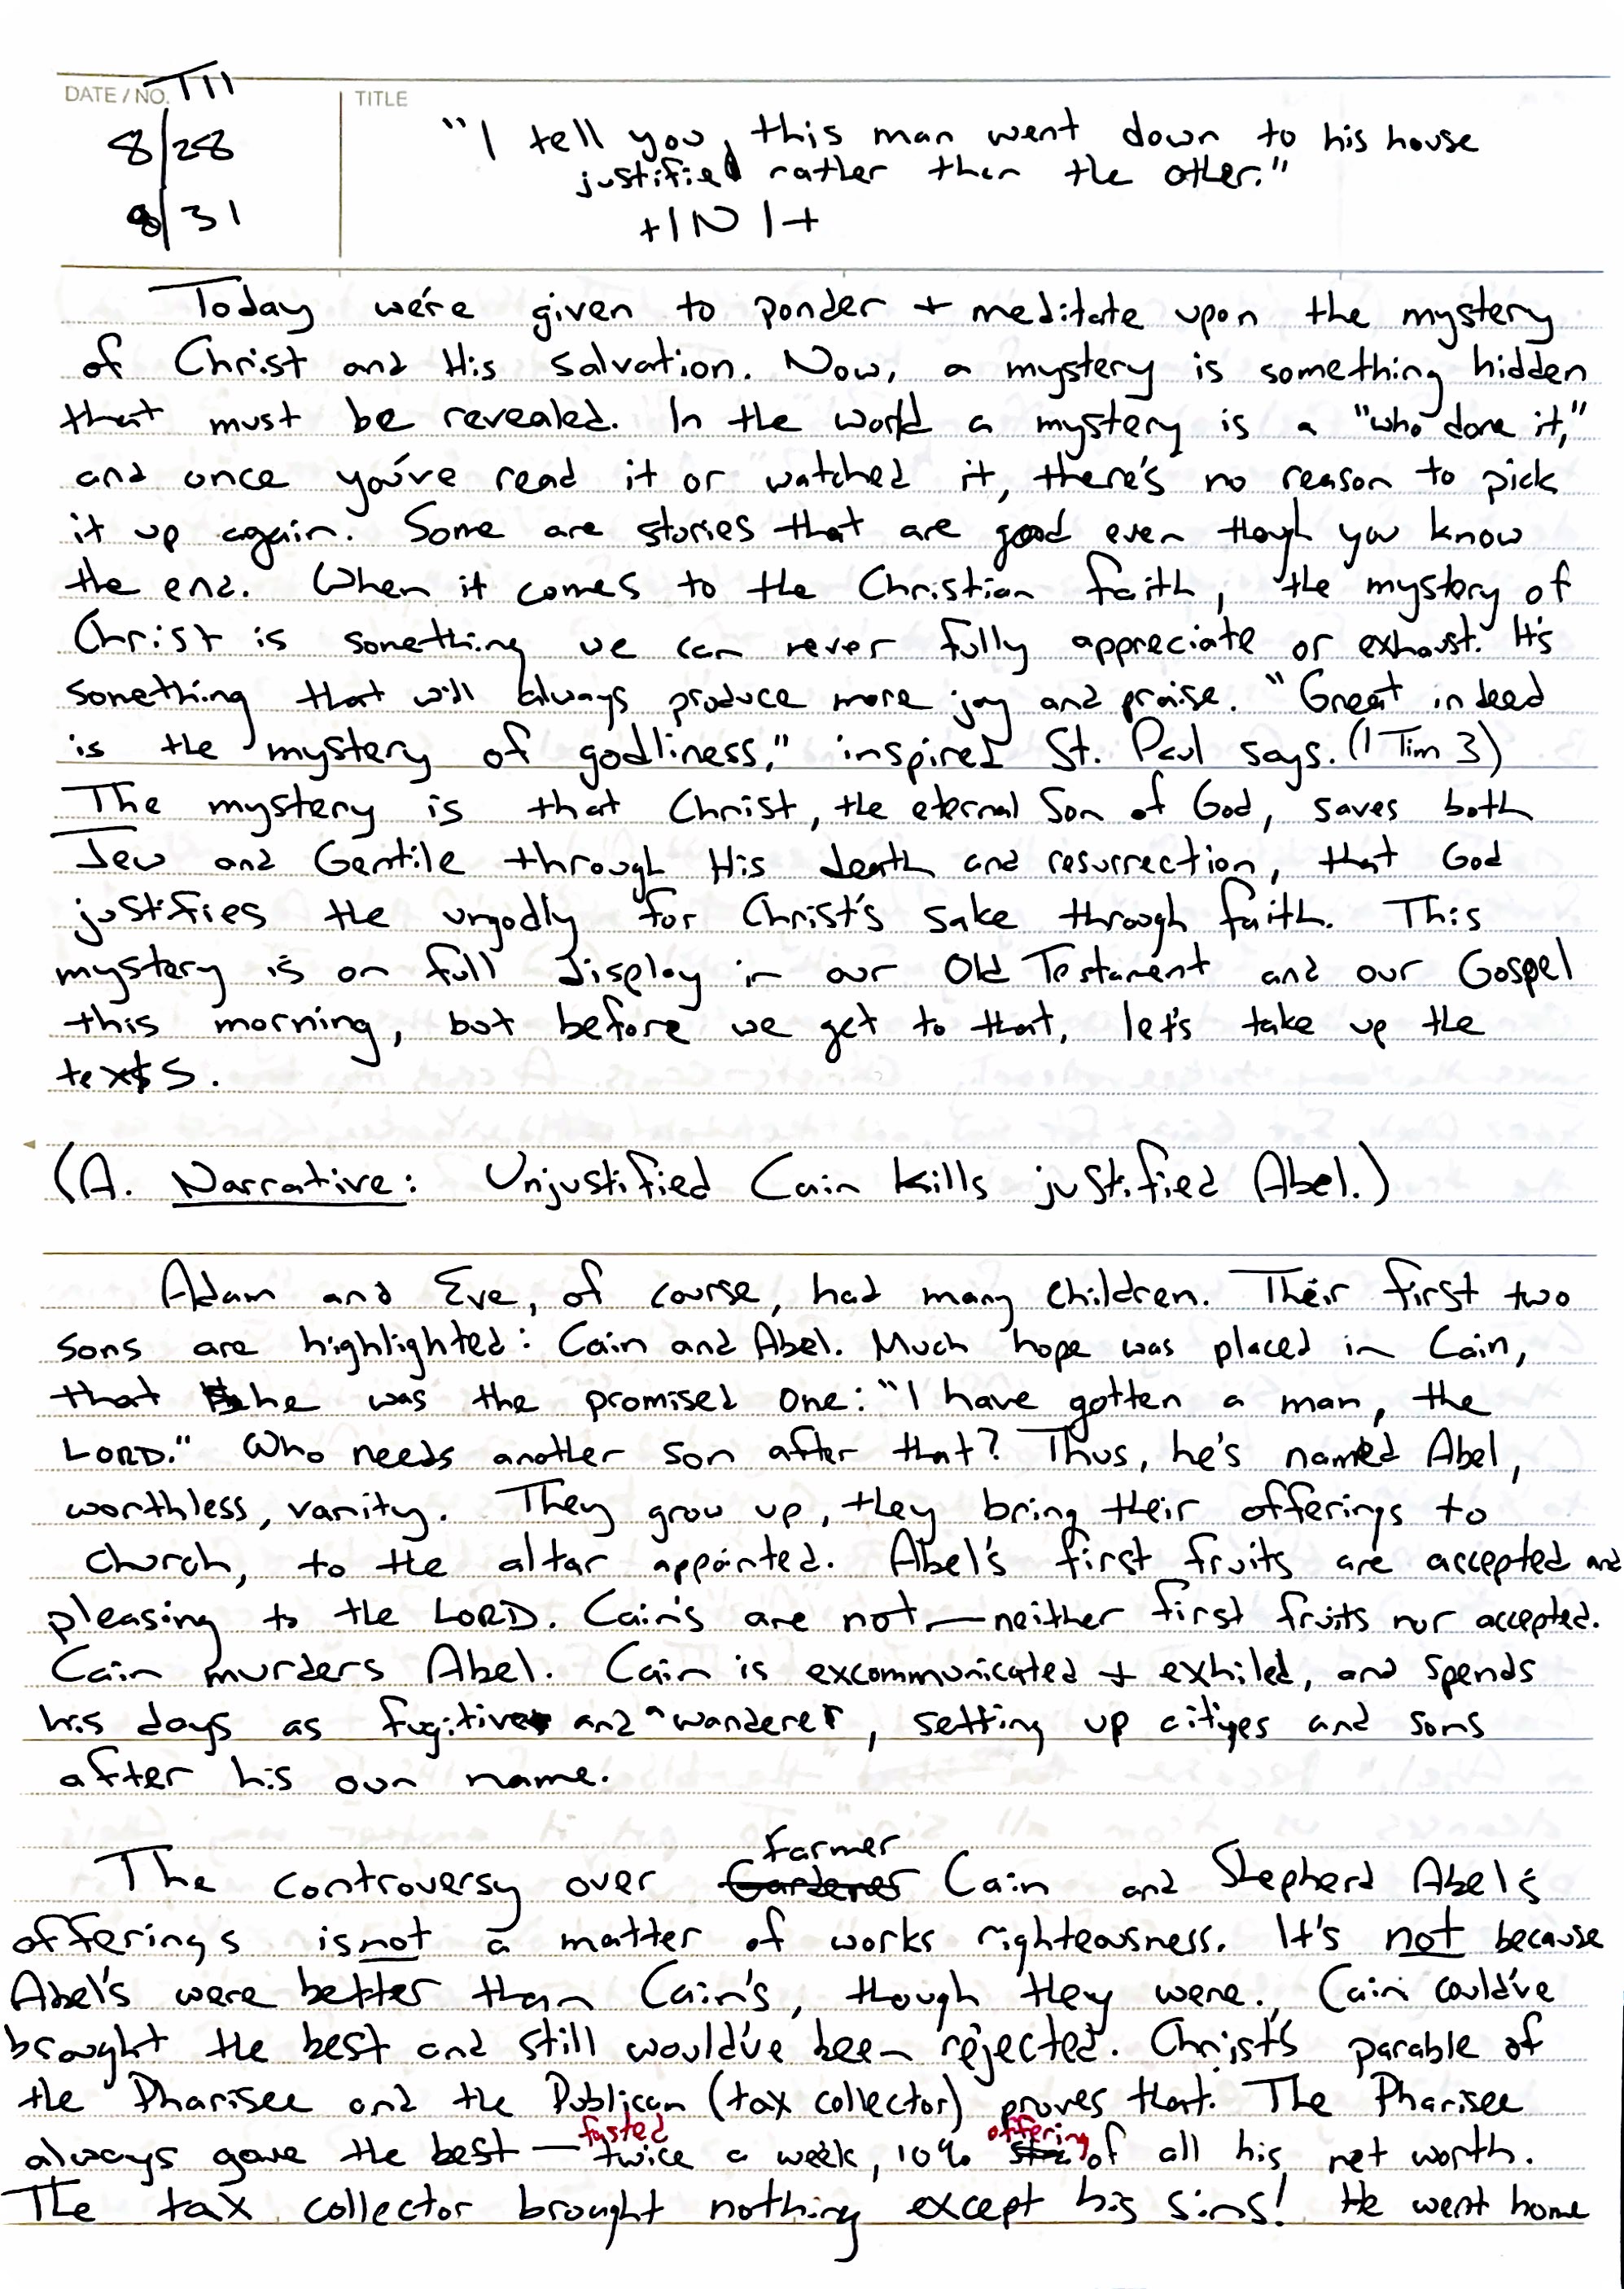 DATE / NO. T11
TITLE
8/28
8/31
"I tell you, this man went down to his house
justified rather than the other."
+INI+
Today we're given to ponder + meditate upon the mystery
of Christ and His salvation. Now, a mystery is something hidden
that must be revealed. In the world a mystery is a "who done it,"
and once you've read it or watched it, there's no reason to pick
it up again. Some are stories that are good even though you know
the end. When it comes to the Christian faith, the mystery of
Christ is something we can never fully appreciate or exhaust. It's
something that will always produce more joy and praise. "Great indeed
is the mystery of godliness," inspired St. Paul says. (1 Tim 3)
The mystery is that Christ, the eternal Son of God, saves both
Jew and Gentile through His death and resurrection, that God
justifies the ungodly for Christ's sake through faith. This
mystery is on full display in our Old Testament and our Gospel
this morning, but before we get to that, let's take up the
texts.
(A. Narrative: Unjustified Cain kills justified Abel.)
Adam and Eve, of course, had many children. Their first two
sons are highlighted: Cain and Abel. Much hope was placed in Cain,
that he was the promised one: "I have gotten a man, the
LORD." Who needs another son after that? Thus, he's named Abel,
worthless, vanity. They grow up, they bring their offerings to
church, to the altar appointed. Abel's first fruits are accepted and
pleasing to the LORD. Cain's are not—neither first fruits nor accepted.
Cain murders Abel. Cain is excommunicated + exhiled, and spends
his days as fugitive and a wanderer, setting up cityes and sons
after his own name.
The controversy over Gardener Farmer Cain and Shepherd Abel's
offerings is not a matter of works righteousness. It's not because
Abel's were better than Cain's, though they were. Cain could've
brought the best and still would've been rejected. Christ's parable of
the Pharisee and the Publican (tax collector) proves that. The Pharisee
always gave the best — fasted twice a week, 10% offering of all his net worth.
The tax collector brought nothing except his sins! He went home